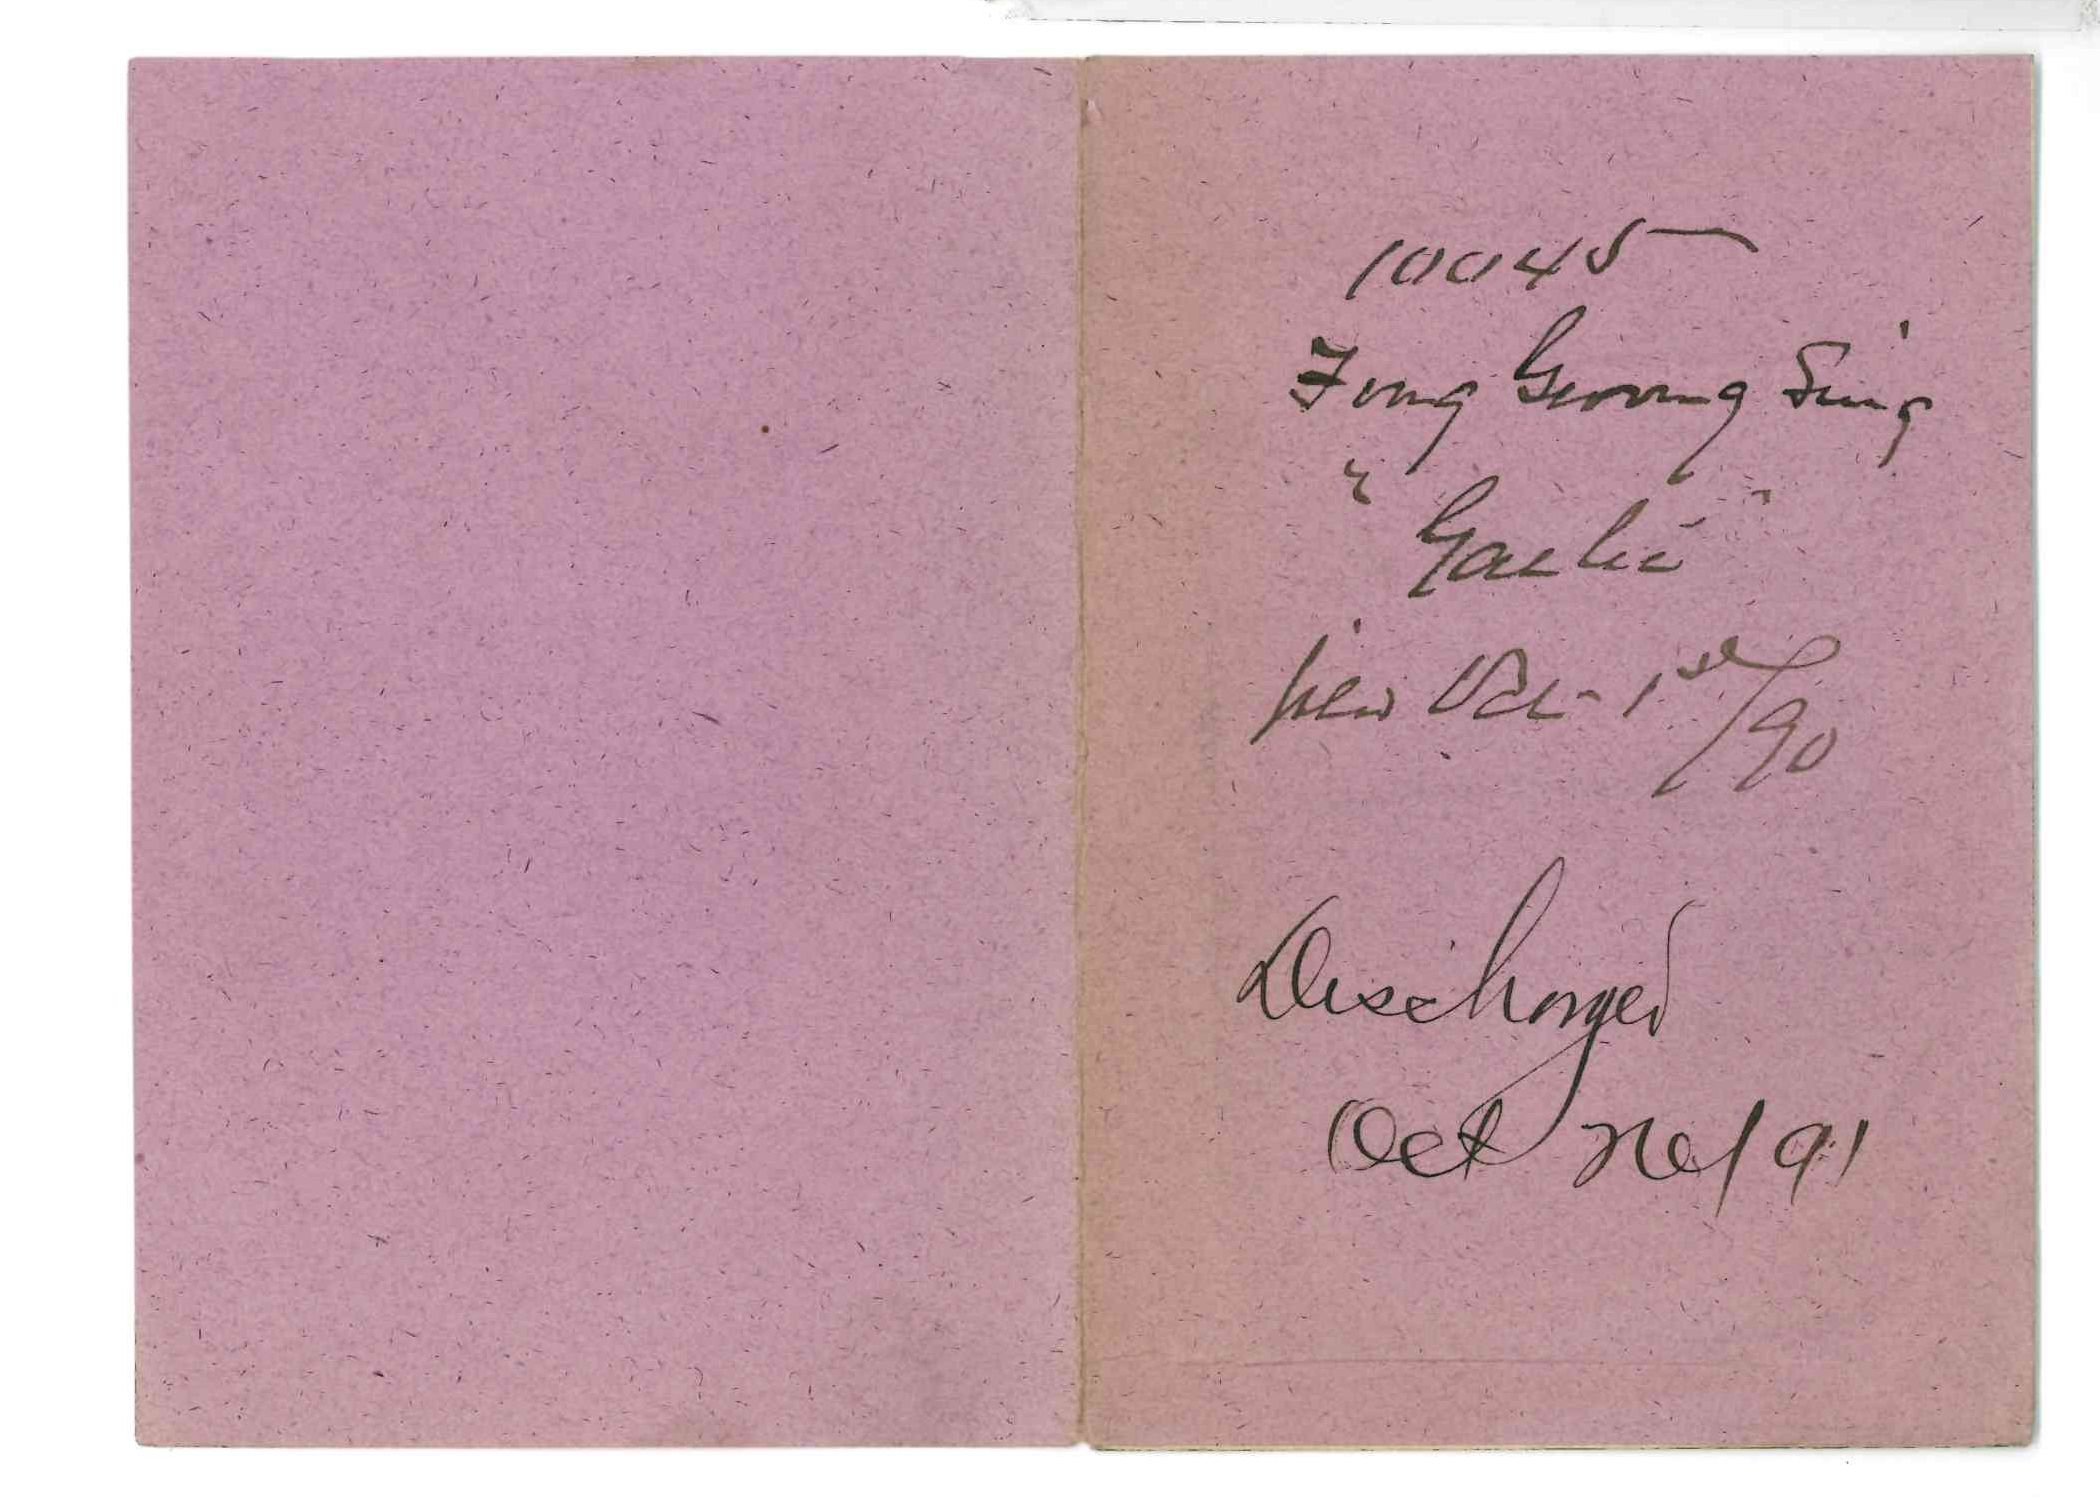 10045
Fong Gwong Sing
"Gaelic"
Oct 1st/90
Discharged
Oct 91